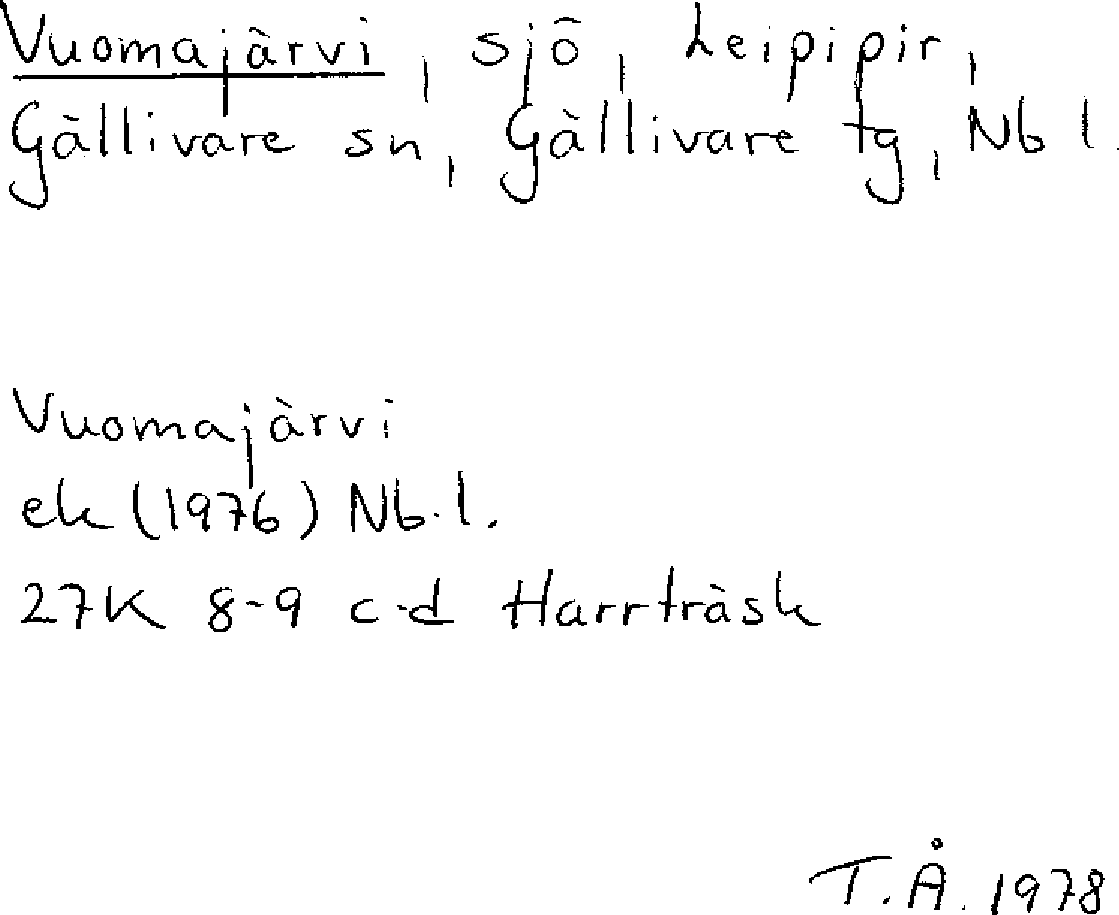 Vuomajärvi, sjö, Leipipir,
Gällivare sn, Gällivare tg, Nb l.
Vuomajärvi
ek (1976) Nb. l.
27K 8-9 c-d Harrträsk
T.Å. 1978